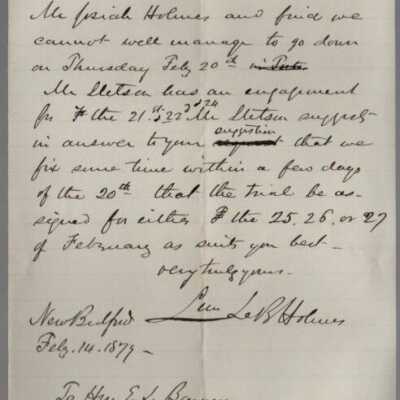 Mr Josiah Holmes and find we
cannot well manage to go down
on Thursday Feby 20th in
Mr Stetson has an engagement
for F the 21.st 22d & 24 Mr Stetson suggests
in answer to your suggestion that we
fix some time within a few days
of the 20th that the trial be as-
signed for either F the 25, 26, or 27
of February as suits you best –
very truly yours –
Le B Holmes
New Bedford
Feby. 14. 1879 –
To Hon E. L.